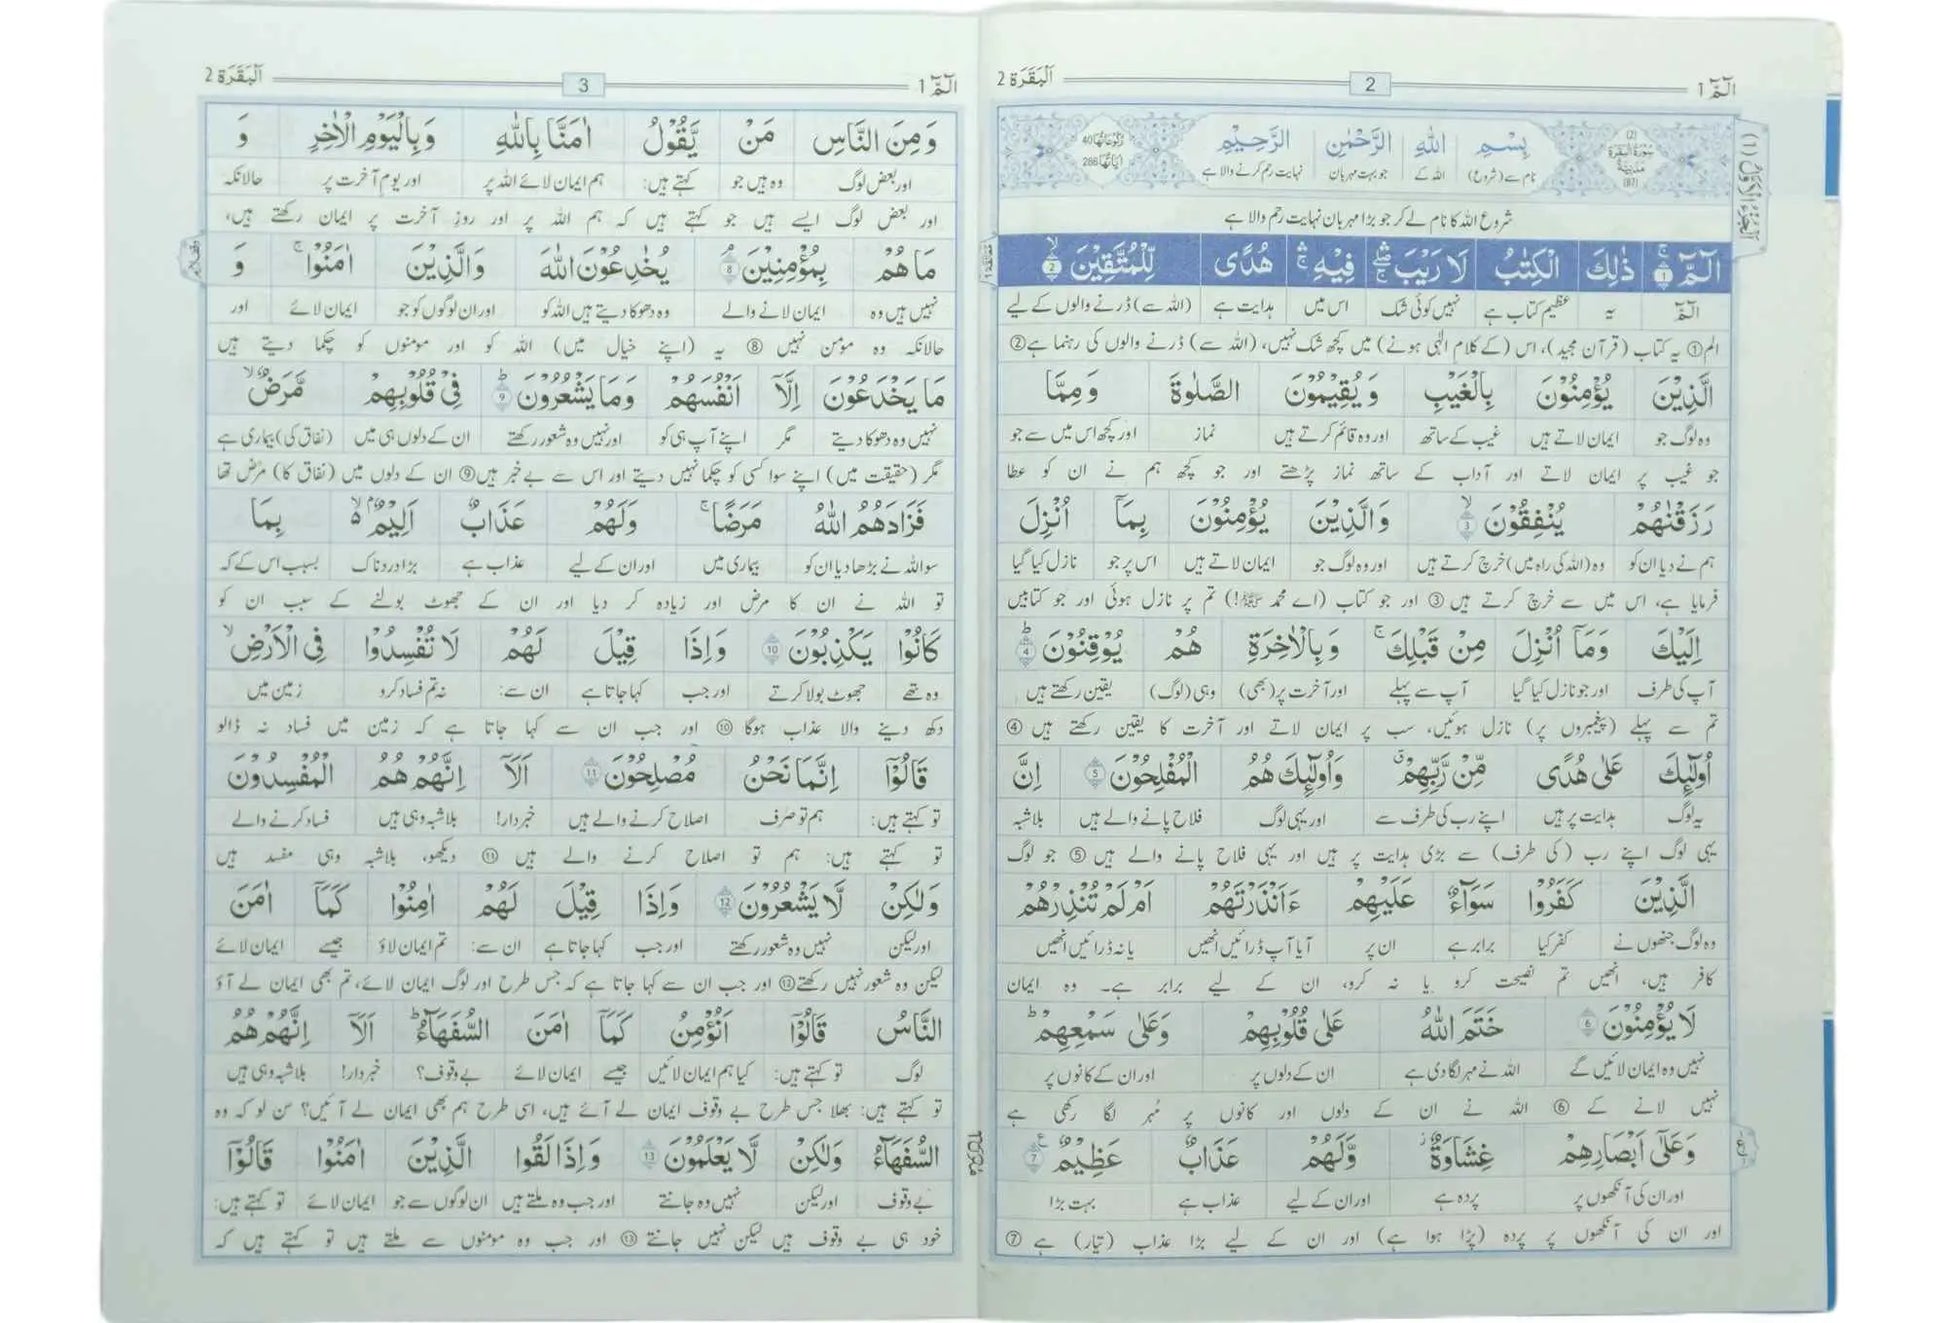 الٓمّٓ 1
2
اَلْبَقَرَة 2
اَلْجُزْءُ الْاَوَّلُ (1)
(2) سُوْرَةُ الْبَقَرَةِ مَدَنِيَّةٌ (87)
بِسْمِ اللّٰهِ الرَّحْمٰنِ الرَّحِيْمِ
رُكُوْعَاتُهَا 40 اٰيَاتُهَا 286
نام سے (شروع) اللہ کے جو بہت مہربان نہایت رحم کرنے والا ہے
شروع اللہ کا نام لے کر جو بڑا مہربان نہایت رحم والا ہے
الٓمّٓ ۚ 1 ذٰلِكَ الْكِتٰبُ لَا رَيْبَ ۛۚ فِيْهِ ۛۚ هُدًى لِّلْمُتَّقِيْنَ ۙ 2
الٓمّٓ یہ عظیم کتاب ہے نہیں کوئی شک اس میں ہدایت ہے (اللہ سے) ڈرنے والوں کے لیے
الم① یہ کتاب (قرآن مجید)، اس (کے کلام الٰہی ہونے) میں کچھ شک نہیں، (اللہ سے) ڈرنے والوں کی رہنما ہے②
الَّذِيْنَ يُؤْمِنُوْنَ بِالْغَيْبِ وَيُقِيْمُوْنَ الصَّلٰوةَ وَمِمَّا
وہ لوگ جو ایمان لاتے ہیں غیب کے ساتھ اور وہ قائم کرتے ہیں نماز اور کچھ اس میں سے جو
جو غیب پر ایمان لاتے اور آداب کے ساتھ نماز پڑھتے اور جو کچھ ہم نے ان کو عطا
رَزَقْنٰهُمْ يُنْفِقُوْنَ ۙ 3 وَالَّذِيْنَ يُؤْمِنُوْنَ بِمَآ اُنْزِلَ
ہم نے دیا ان کو وہ (اللہ کی راہ میں) خرچ کرتے ہیں اور وہ لوگ جو ایمان لاتے ہیں اس پر جو نازل کیا گیا
فرمایا ہے، اس میں سے خرچ کرتے ہیں③ اور جو کتاب (اے محمد ﷺ!) تم پر نازل ہوئی اور جو کتابیں
اِلَيْكَ وَمَآ اُنْزِلَ مِنْ قَبْلِكَ ۚ وَبِالْاٰخِرَةِ هُمْ يُوْقِنُوْنَ ؕ 4
آپ کی طرف اور جو نازل کیا گیا آپ سے پہلے اور آخرت پر (بھی) وہی (لوگ) یقین رکھتے ہیں
تم سے پہلے (پیغمبروں پر) نازل ہوئیں، سب پر ایمان لاتے اور آخرت کا یقین رکھتے ہیں④
اُولٰٓئِكَ عَلٰى هُدًى مِّنْ رَّبِّهِمْ ۤ وَاُولٰٓئِكَ هُمُ الْمُفْلِحُوْنَ 5 اِنَّ
یہ لوگ ہدایت پر ہیں اپنے رب کی طرف سے اور یہی لوگ فلاح پانے والے ہیں بلاشبہ
یہی لوگ اپنے رب (کی طرف) سے بڑی ہدایت پر ہیں اور یہی فلاح پانے والے ہیں⑤ جو لوگ
الَّذِيْنَ كَفَرُوْا سَوَآءٌ عَلَيْهِمْ ءَاَنْذَرْتَهُمْ اَمْ لَمْ تُنْذِرْهُمْ
وہ لوگ جنھوں نے کفر کیا برابر ہے ان پر آیا آپ ڈرائیں انھیں یا نہ ڈرائیں انھیں
کافر ہیں، انھیں تم نصیحت کرو یا نہ کرو، ان کے لیے برابر ہے۔ وہ ایمان
لَا يُؤْمِنُوْنَ 6 خَتَمَ اللّٰهُ عَلٰى قُلُوْبِهِمْ وَعَلٰى سَمْعِهِمْ ؕ
نہیں وہ ایمان لائیں گے اللہ نے مہر لگا دی ہے ان کے دلوں پر اور ان کے کانوں پر
نہیں لانے کے⑥ اللہ نے ان کے دلوں اور کانوں پر مُہر لگا رکھی ہے
وَعَلٰٓى اَبْصَارِهِمْ غِشَاوَةٌ ۫ وَّلَهُمْ عَذَابٌ عَظِيْمٌ 7
اور ان کی آنکھوں پر پردہ ہے اور ان کے لیے عذاب ہے بہت بڑا
اور ان کی آنکھوں پر پردہ (پڑا ہوا ہے) اور ان کے لیے بڑا عذاب (تیار) ہے⑦
الٓمّٓ 1
3
اَلْبَقَرَة 2
وَمِنَ النَّاسِ مَنْ يَّقُوْلُ اٰمَنَّا بِاللّٰهِ وَبِالْيَوْمِ الْاٰخِرِ وَ
اور بعض لوگ وہ ہیں جو کہتے ہیں: ہم ایمان لائے اللہ پر اور یوم آخرت پر حالانکہ
اور بعض لوگ ایسے ہیں جو کہتے ہیں کہ ہم اللہ پر اور روز آخرت پر ایمان رکھتے ہیں،
مَا هُمْ بِمُؤْمِنِيْنَ ۘ 8 يُخٰدِعُوْنَ اللّٰهَ وَالَّذِيْنَ اٰمَنُوْا ۚ وَ
نہیں ہیں وہ ایمان لانے والے وہ دھوکا دیتے ہیں اللہ کو اور ان لوگوں کو جو ایمان لائے اور
حالانکہ وہ مومن نہیں⑧ یہ (اپنے خیال میں) اللہ کو اور مومنوں کو چکما دیتے ہیں
مَا يَخْدَعُوْنَ اِلَّآ اَنْفُسَهُمْ وَمَا يَشْعُرُوْنَ ؕ 9 فِيْ قُلُوْبِهِمْ مَّرَضٌ ۙ
نہیں وہ دھوکا دیتے مگر اپنے آپ ہی کو اور نہیں وہ شعور رکھتے ان کے دلوں ہی میں (نفاق کی) بیماری ہے
مگر (حقیقت میں) اپنے سوا کسی کو چکما نہیں دیتے اور اس سے بے خبر ہیں⑨ ان کے دلوں میں (نفاق کا) مرض تھا
فَزَادَهُمُ اللّٰهُ مَرَضًا ۚ وَلَهُمْ عَذَابٌ اَلِيْمٌ ۢ ۙ بِمَا
سو اللہ نے بڑھا دیا ان کو بیماری میں اور ان کے لیے عذاب ہے بڑا دردناک بسبب اس کے کہ
تو اللہ نے ان کا مرض اور زیادہ کر دیا اور ان کے جھوٹ بولنے کے سبب ان کو
كَانُوْا يَكْذِبُوْنَ 10 وَاِذَا قِيْلَ لَهُمْ لَا تُفْسِدُوْا فِى الْاَرْضِ ۙ
وہ تھے جھوٹ بولا کرتے اور جب کہا جاتا ہے ان سے: نہ تم فساد کرو زمین میں
دکھ دینے والا عذاب ہوگا⑩ اور جب ان سے کہا جاتا ہے کہ زمین میں فساد نہ ڈالو
قَالُوْٓا اِنَّمَا نَحْنُ مُصْلِحُوْنَ 11 اَلَآ اِنَّهُمْ هُمُ الْمُفْسِدُوْنَ
تو کہتے ہیں: ہم تو صرف اصلاح کرنے والے ہیں خبردار! بلاشبہ وہی ہیں فساد کرنے والے
تو کہتے ہیں: ہم تو اصلاح کرنے والے ہیں⑪ دیکھو، بلاشبہ وہی مفسد ہیں
وَلٰكِنْ لَّا يَشْعُرُوْنَ 12 وَاِذَا قِيْلَ لَهُمْ اٰمِنُوْا كَمَآ اٰمَنَ
اور لیکن نہیں وہ شعور رکھتے اور جب کہا جاتا ہے ان سے: تم ایمان لاؤ جیسے ایمان لائے
لیکن وہ شعور نہیں رکھتے⑫ اور جب ان سے کہا جاتا ہے کہ جس طرح اور لوگ ایمان لائے، تم بھی ایمان لے آؤ
النَّاسُ قَالُوْٓا اَنُؤْمِنُ كَمَآ اٰمَنَ السُّفَهَآءُ ؕ اَلَآ اِنَّهُمْ هُمُ
لوگ تو کہتے ہیں: کیا ہم ایمان لائیں جیسے ایمان لائے بے وقوف؟ خبردار! بلاشبہ وہی ہیں
تو کہتے ہیں: بھلا جس طرح بے وقوف ایمان لے آئے ہیں، اسی طرح ہم بھی ایمان لے آئیں؟ سن لو کہ وہ
السُّفَهَآءُ وَلٰكِنْ لَّا يَعْلَمُوْنَ 13 وَاِذَا لَقُوا الَّذِيْنَ اٰمَنُوْا قَالُوْٓا
بے وقوف اور لیکن نہیں وہ جانتے اور جب وہ ملتے ہیں ان لوگوں سے جو ایمان لائے تو کہتے ہیں:
خود ہی بے وقوف ہیں لیکن نہیں جانتے⑬ اور جب وہ مومنوں سے ملتے ہیں تو کہتے ہیں کہ